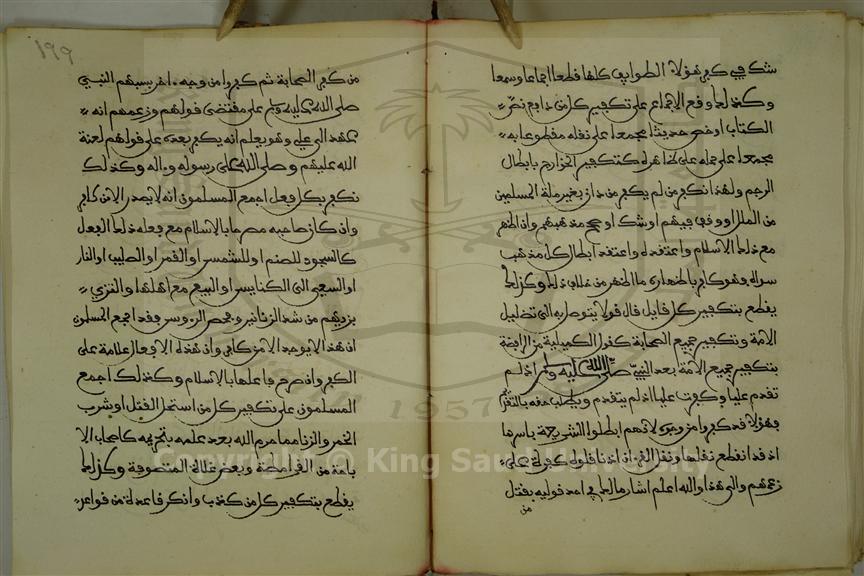 شك في كفر هؤلاء الطوايف كلها قطعا اجماعا وسمعا
وكذلك وقع الاجماع على تكفير كل من دافع نص
الكتاب او خص حديثا مجمعا على نقله مقطوعا به
مجمعا على حمله على ظاهره كتكفير الخوارج بابطال
الرجم ولهذا نكفر من لم يكفر من دان بغير ملة المسلمين
من الملل او وقف فيهم او شك او صحح مذهبهم وان اظهر
مع ذلك الاسلام واعتقده واعتقد ابطال كل مذهب
سواه فهو كافر باظهاره ما اظهر من خلاف ذلك وكذلك
يقطع بتكفير كل قايل قال قولا يتوصل به الى تضليل
الامة وتكفير جميع الصحابة كقول الكميلية من الرافضة
بتكفير جميع الامة بعد النبي صلى الله عليه وسلم اذ لم
تقدم عليا وكفرت عليا اذ لم يتقدم ويطلب حقه بالتقدم
فهؤلاء قد كفروا من وجوه لانهم ابطلوا الشريعة باسرها
اذ قد انقطع نقلها ونقل القرءان اذ ناقلوه كفرة على
زعمهم والى هذا والله اعلم اشار مالك في احد قوليه بقتل
من
١٩٩
من كفر الصحابة ثم كفروا من وجه ءاخر بسبهم النبي
صلى الله عليه وسلم على مقتضى قولهم وزعمهم انه
عهد الى علي وهو يعلم انه يكفر بعده على قولهم لعنة
الله عليهم وصلى الله على رسوله وءاله وكذلك
نكفر بكل فعل اجمع المسلمون انه لا يصدر الا من كافر
وان كان صاحبه مصرحا بالاسلام مع فعله ذلك الفعل
كالسجود للصنم او للشمس او القمر او الصليب او النار
او السعي الى الكنايس والبيع مع اهلها والتزي
بزيهم من شد الزنانير وفحص الروس فقد اجمع المسلمون
ان هذا لا يوجد الا من كافر وان هذه الافعال علامة على
الكفر وان صرح فاعلها بالاسلام وكذلك اجمع
المسلمون على تكفير كل من استحل القتل او شرب
الخمر والزنا مما حرم الله بعد علمه بتحريمه كاصحاب الا
باحة من القرامطة وبعض غلاة المتصوفة وكذلك
يقطع بتكفير كل من كذب وانكر قاعدة من قواعد
Copyright © King Saud University
1957